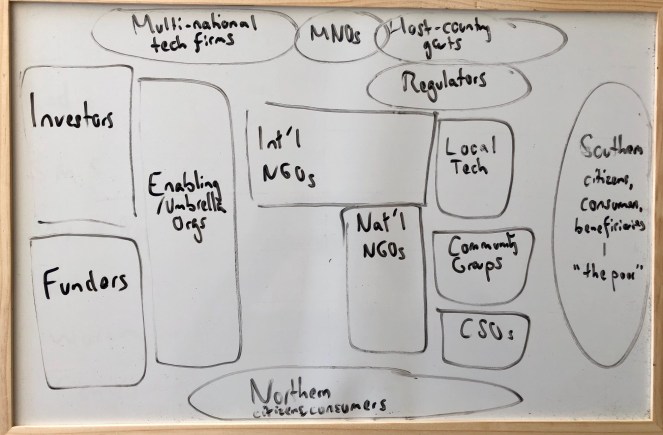 Multi-national
tech firms
MNOs
Host-country
govts
Regulators
Investors
Enabling
/Umbrella
Orgs
Int'l
NGOs
Local
Tech
Southern
citizens,
consumers,
beneficiaries
|
"the poor"
Nat'l
NGOs
Community
Groups
Funders
CSOs
Northern
citizens, consumers